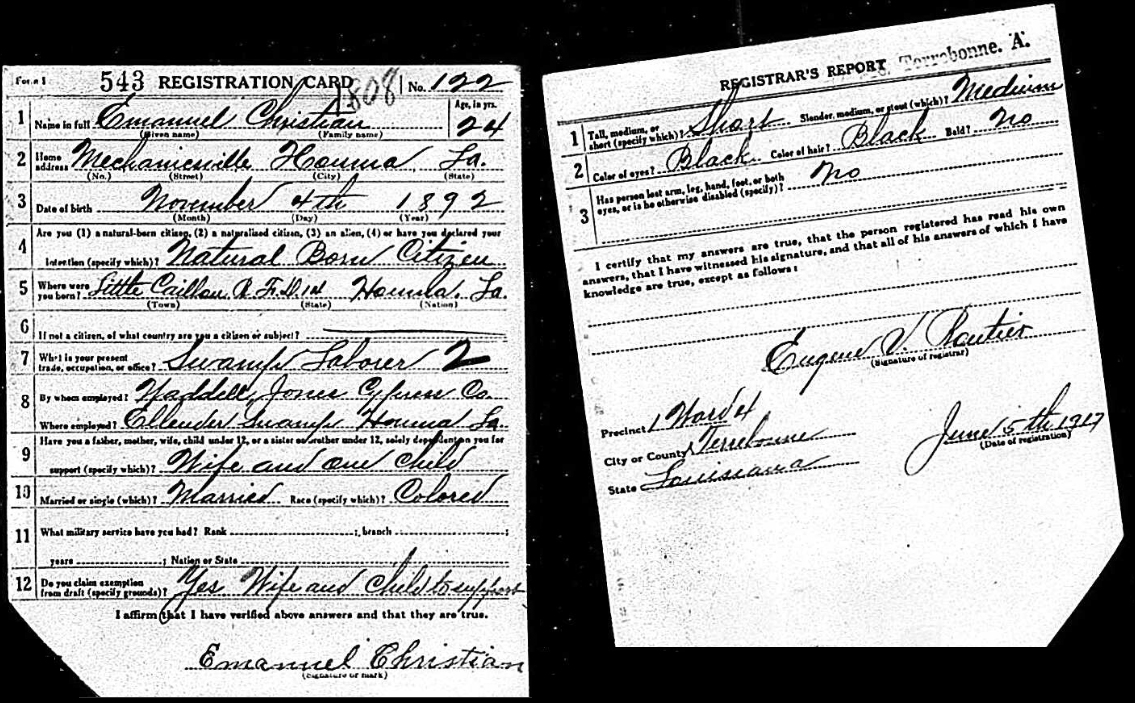 Form 1 543 REGISTRATION CARD 1808 No. 122
1 Name in full Emanuel Christian Age, in yrs. 24
(Given name) (Family name)
2 Home address Mechanicville Houma La.
(No.) (Street) (City) (State)
3 Date of birth November 4th 1892
(Month) (Day) (Year)
4 Are you (1) a natural-born citizen, (2) a naturalized citizen, (3) an alien, (4) or have you declared your
intention (specify which)? Natural Born Citizen
5 Where were you born? Little Caillou R.F.D. Houma. La.
(Town) (State) (Nation)
6 If not a citizen, of what country are you a citizen or subject?
7 What is your present trade, occupation, or office? Swamp Laborer 2
8 By whom employed? Waddell, Jones Cypress Co.
Where employed? Ellender Swamp Houma La.
9 Have you a father, mother, wife, child under 12, or a sister or brother under 12, solely dependent on you for
support (specify which)? Wife and one child
10 Married or single (which)? Married Race (specify which)? Colored
11 What military service have you had? Rank ; branch ;
years ; Nation or State
12 Do you claim exemption from draft (specify grounds)? Yes Wife and child to support
I affirm that I have verified above answers and that they are true.
Emanuel Christian
(Signature or mark)
Terrebonne. A.
REGISTRAR'S REPORT
1 Tall, medium, or short (specify which)? Short Slender, medium, or stout (which)? Medium
2 Color of eyes? Black Color of hair? Black Bald? No
3 Has person lost arm, leg, hand, foot, or both
eyes, or is he otherwise disabled (specify)? No
I certify that my answers are true, that the person registered has read his own
answers, that I have witnessed his signature, and that all of his answers of which I have
knowledge are true, except as follows:
Eugene V.
(Signature of registrar)
Precinct 1 Ward 4
City or County Terrebonne
State Louisiana
June 5th 1917
(Date of registration)